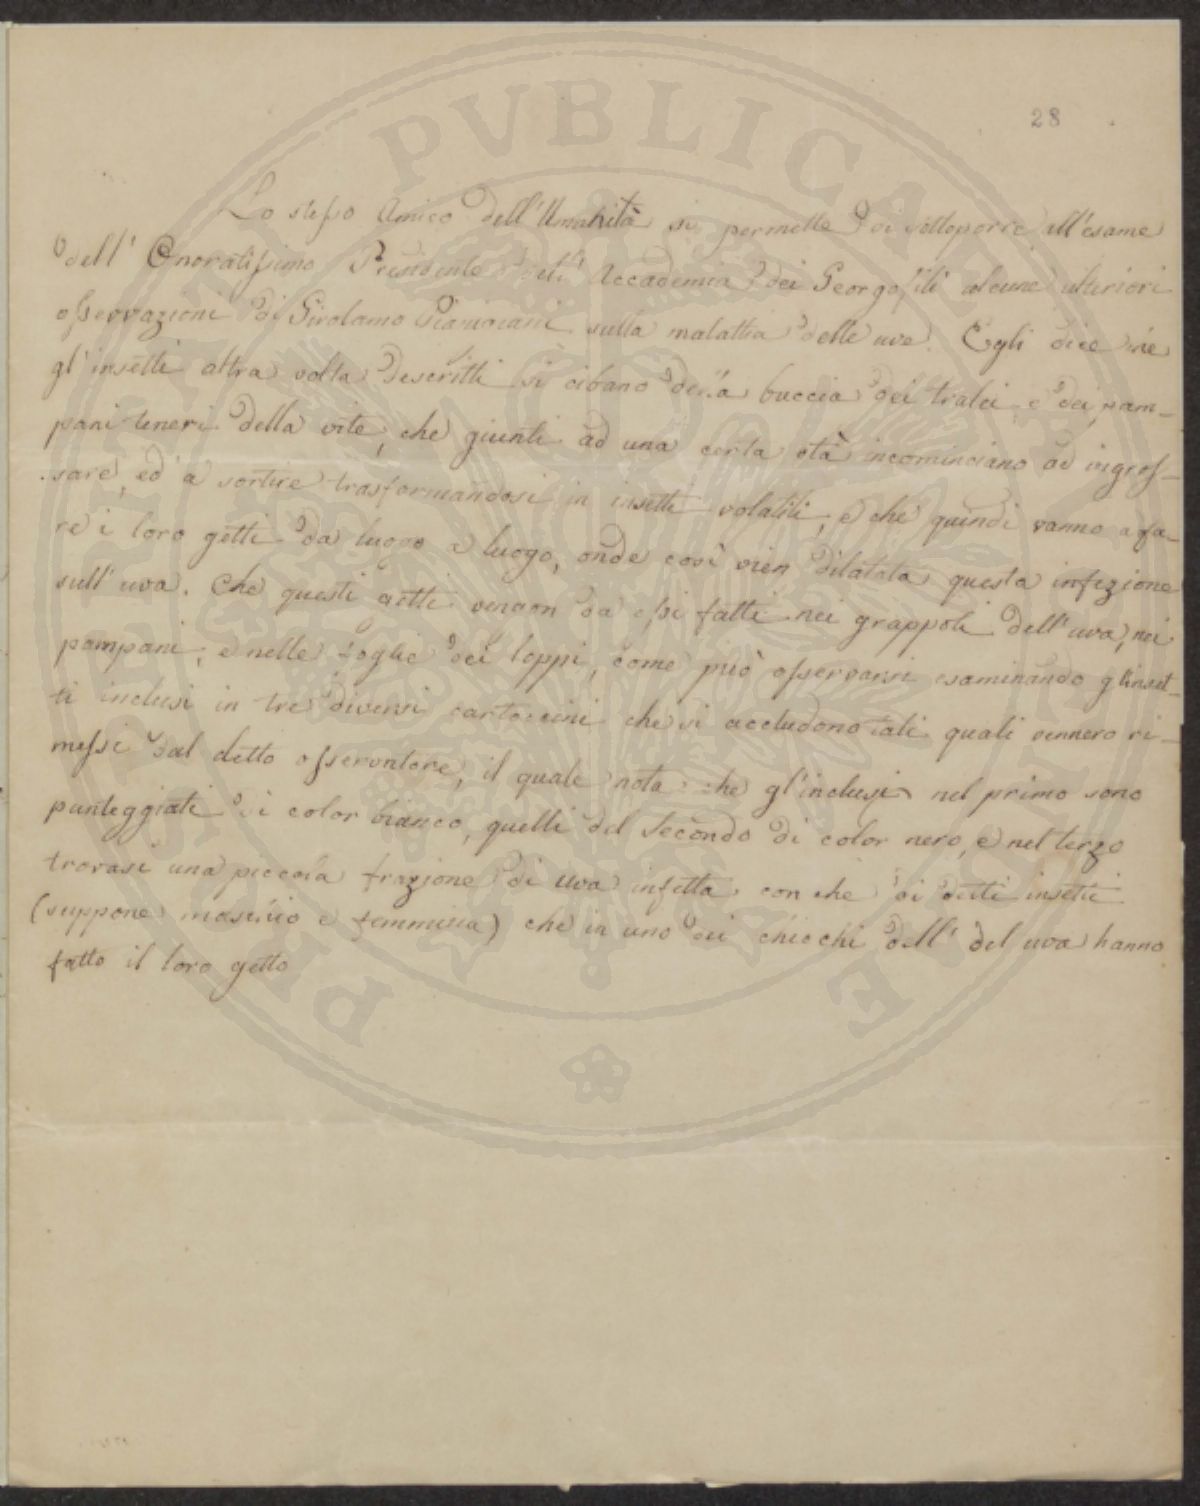 28
Lo stesso Amico dell'Umanità si permette di sottoporre all'esame
dell'Onoratissimo Presidente dell'Accademia dei Georgofili alcune ulteriori
osservazioni di Girolamo sulla malattia delle uve. Egli dice che
gl'insetti altra volta descritti si cibano della buccia dei tralci e dei pam-
pani teneri della vite, che giunti ad una certa età incominciano ad ingros-
sare, ed a sortire trasformandosi in insetti volatili, e che quindi vanno a fa-
re i loro getti da luogo a luogo, onde così vien dilatata questa infezione
sull'uva. Che questi getti vengon da essi fatti nei grappoli dell'uva, nei
pampani, e nelle foglie dei loppi, come può osservarsi esaminando gl'inset-
ti inclusi in tre diversi cartoccini che si accludono tali quali vennero ri-
messi dal detto osservatore, il quale nota che gl'inclusi nel primo sono
punteggiati di color bianco, quelli del secondo di color nero, e nel terzo
trovasi una piccola frazione di uva infetta con che di detti insetti
(suppone maschio e femmina) che in uno dei chicchi dell' del uva hanno
fatto il loro getto
PVBLICAE